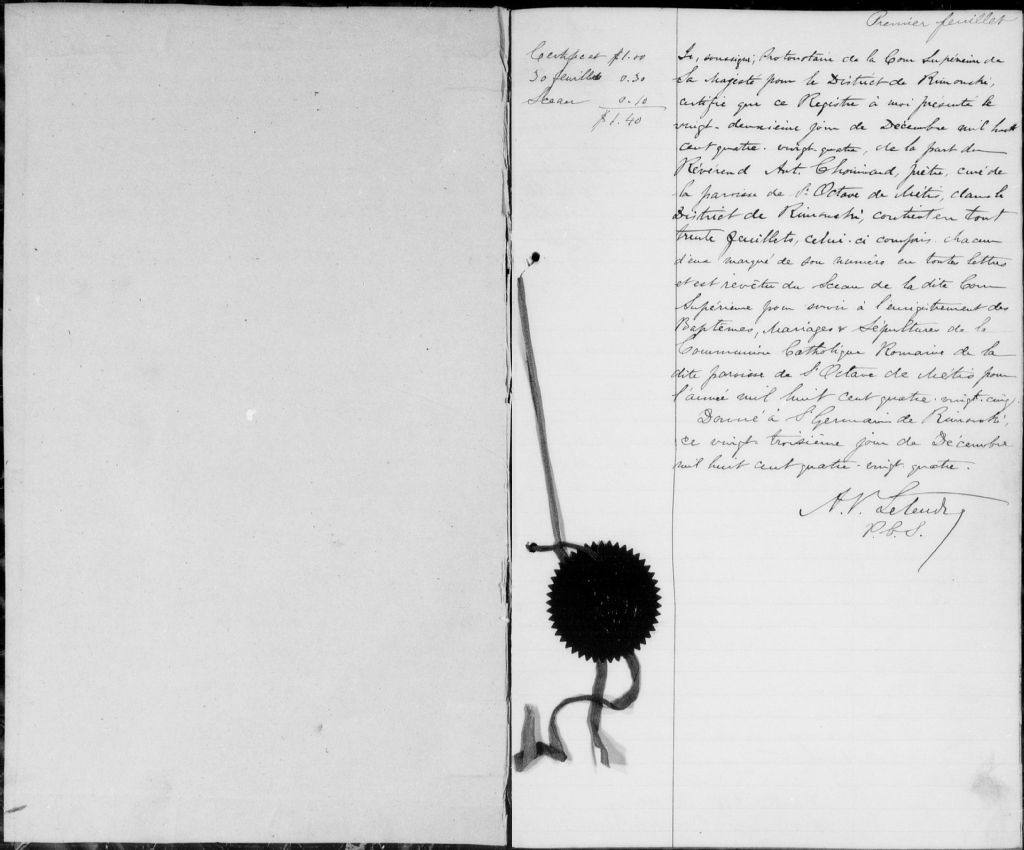 Premier feuillet
Certificat $1.00
30 feuillets 0.30
Sceau 0.10
$1.40
Je, soussigné, Protonotaire de la Cour Supérieure de
Sa Majesté pour le District de Rimouski,
certifie que ce Registre à moi présenté le
vingt-deuxième jour de Décembre mil huit
cent quatre-vingt-quatre, de la part du
Révérend Ant. Chouinard, prêtre, curé de
la paroisse de St Octave de Métis, dans le
District de Rimouski, contient en tout
trente feuillets, celui-ci compris, chacun
d'eux marqué de son numéro en toutes lettres
et est revêtu du Sceau de la dite Cour
Supérieure pour servir à l'enregistrement des
Baptêmes, Mariages & Sépultures de la
Communion Catholique Romaine de la
dite paroisse de St Octave de Métis pour
l'année mil huit cent quatre-vingt-cinq.
Donné à St Germain de Rimouski,
ce vingt troisième jour de Décembre
mil huit cent quatre-vingt-quatre.
A. P. Letendre
P.C.S.